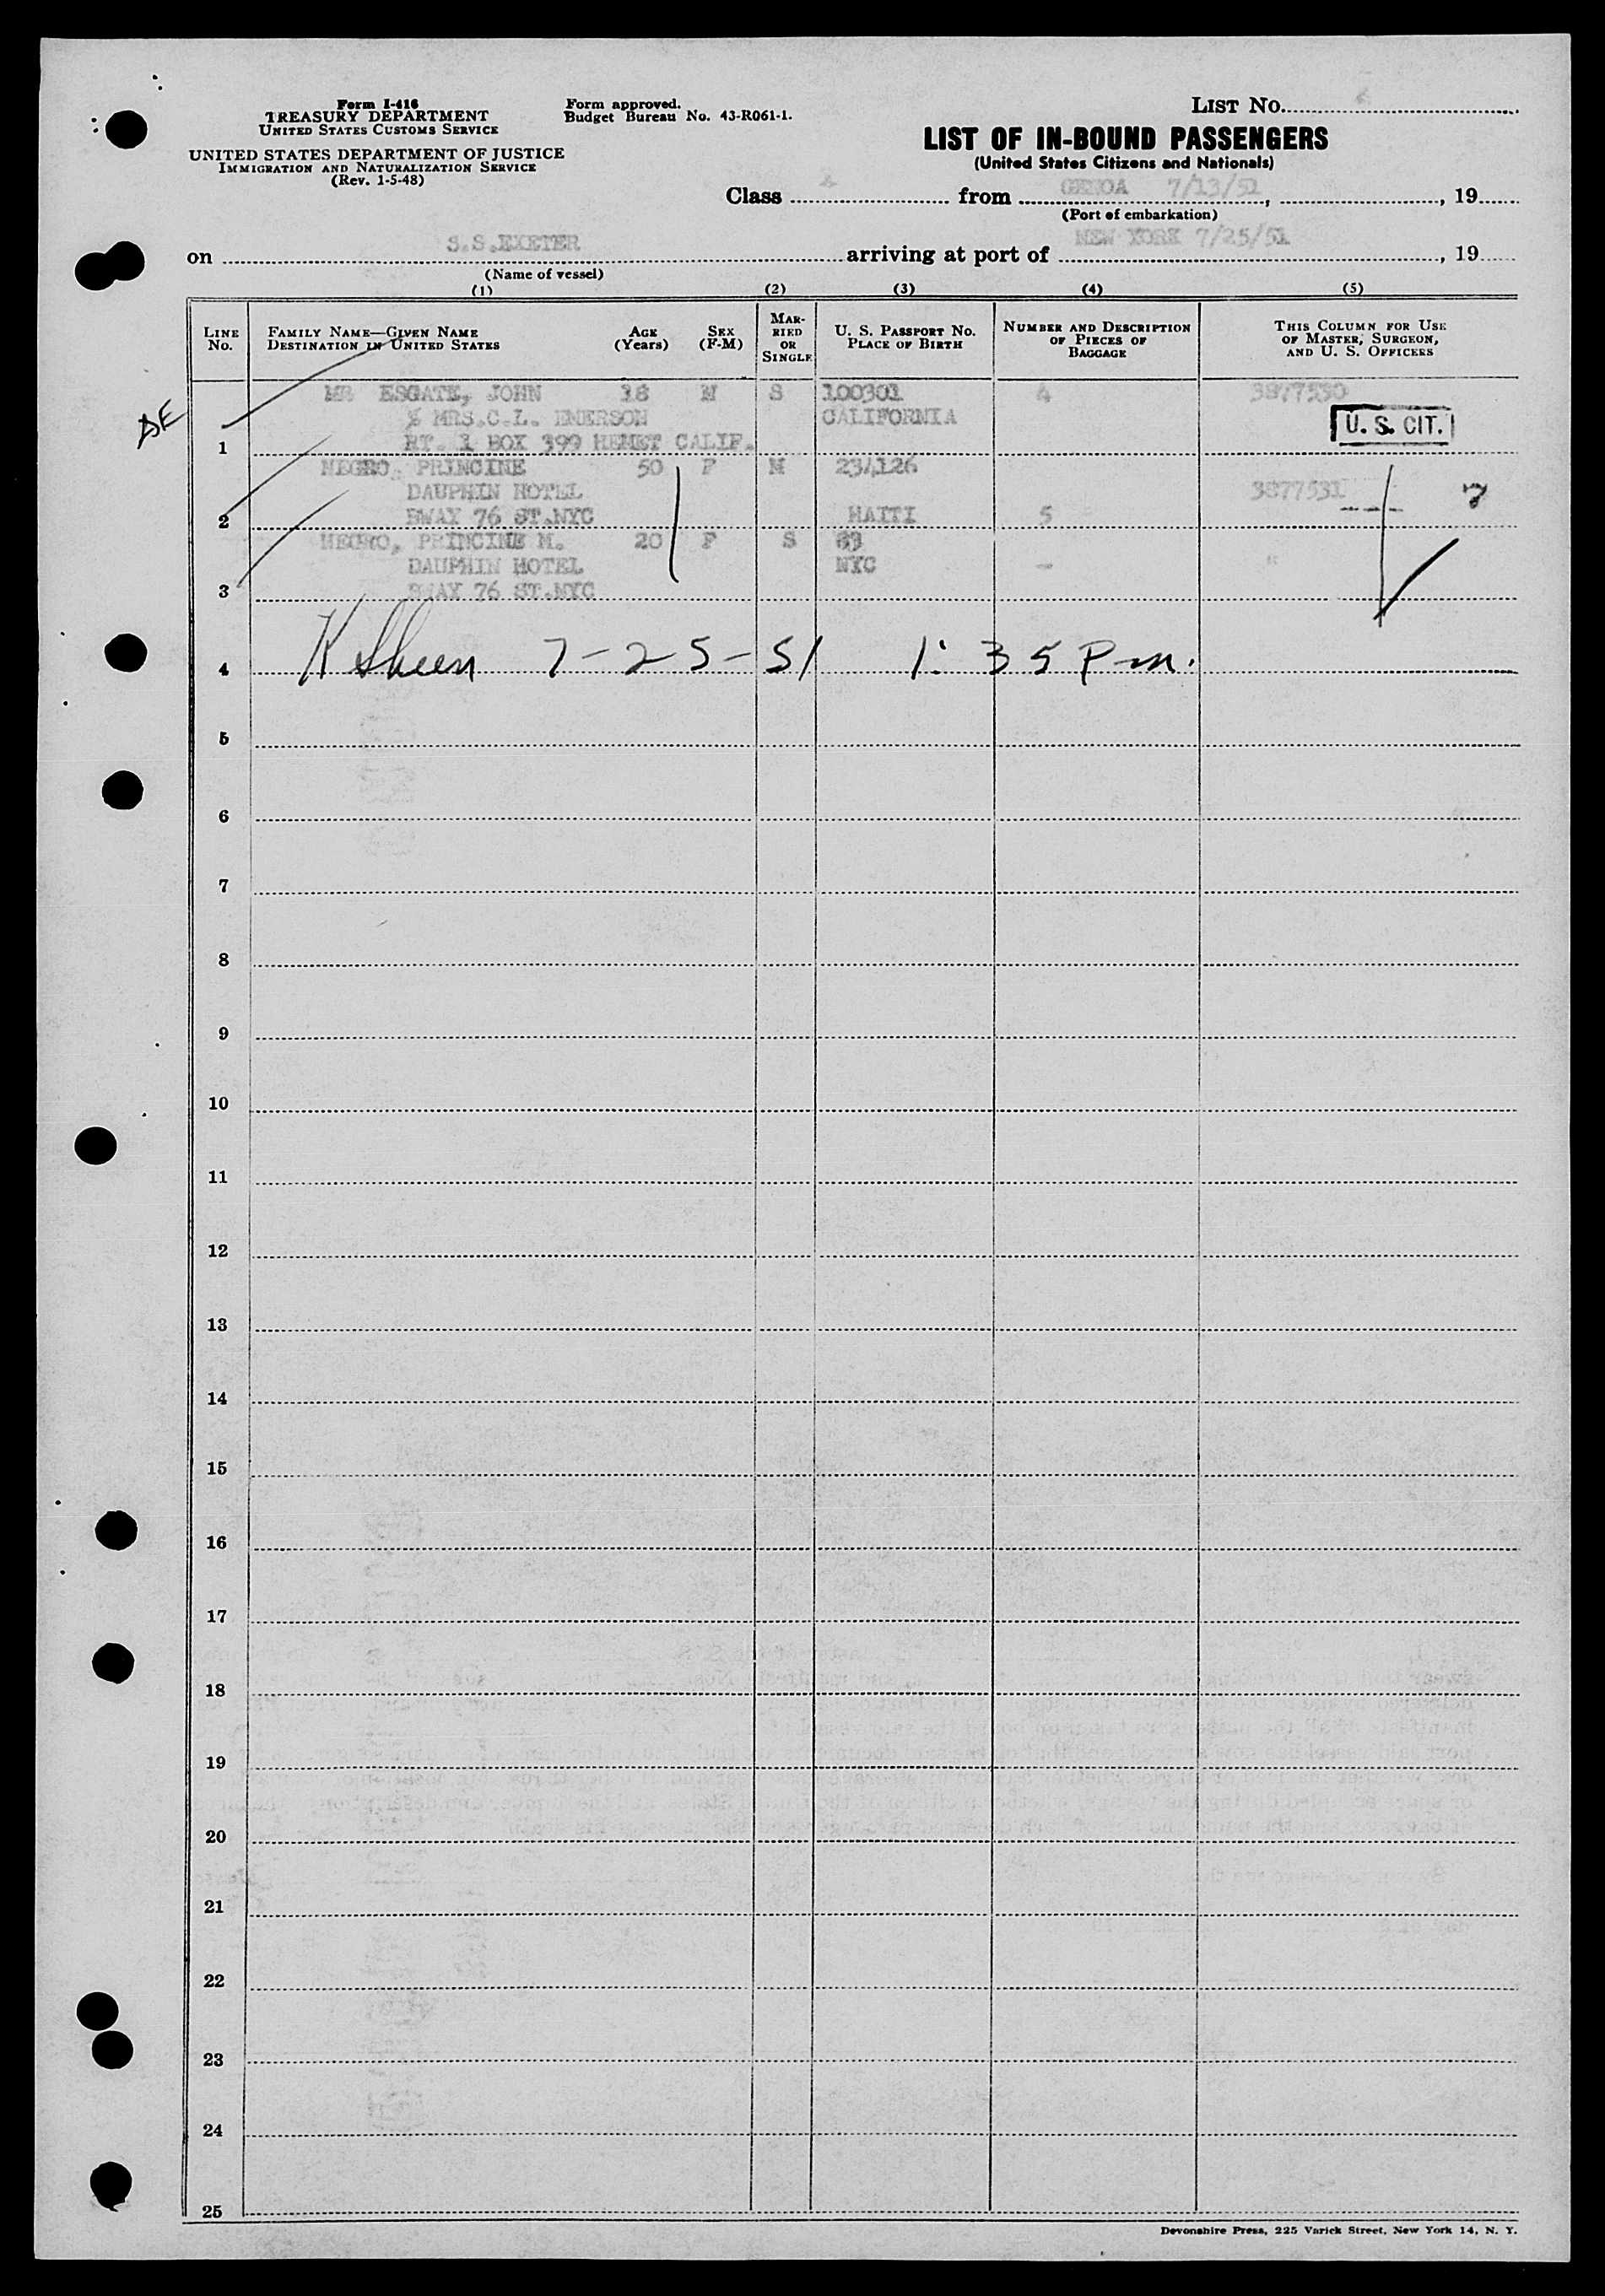 Form I-416
TREASURY DEPARTMENT
UNITED STATES CUSTOMS SERVICE
UNITED STATES DEPARTMENT OF JUSTICE
IMMIGRATION AND NATURALIZATION SERVICE
(Rev. 1-5-48)
Form approved.
Budget Bureau No. 43-R061-1.
LIST No.
LIST OF IN-BOUND PASSENGERS
(United States Citizens and Nationals)
Class from GENOA 7/13/51, , 19
(Port of embarkation)
on S.S.EXETER arriving at port of NEW YORK 7/25/51, 19
(Name of vessel)
(1) (2) (3) (4) (5)
LINE No. FAMILY NAME—GIVEN NAME DESTINATION IN UNITED STATES AGE (Years) SEX (F-M) MARRIED OR SINGLE U. S. PASSPORT No. PLACE OF BIRTH NUMBER AND DESCRIPTION OF PIECES OF BAGGAGE THIS COLUMN FOR USE OF MASTER, SURGEON, AND U. S. OFFICERS
MR ESGATE, JOHN 18 M S 100301 4 3877530
% MRS.C.L. EMERSON CALIFORNIA U. S. CIT.
1 RT. 1 BOX 399 HEMET CALIF.
NEGRO, PRINCINE 50 F M 234126
DAUPHIN HOTEL 3877531
2 BWAY 76 ST.NYC HAITI 5
NEGRO, PRINCINE M. 20 F S 83
DAUPHIN HOTEL NYC - "
3 BWAY 76 ST.NYC
4 K Sheen 7-25-51 1:35 Pm.
5
6
7
8
9
10
11
12
13
14
15
16
17
18
19
20
21
22
23
24
25
Devonshire Press, 225 Varick Street, New York 14, N. Y.